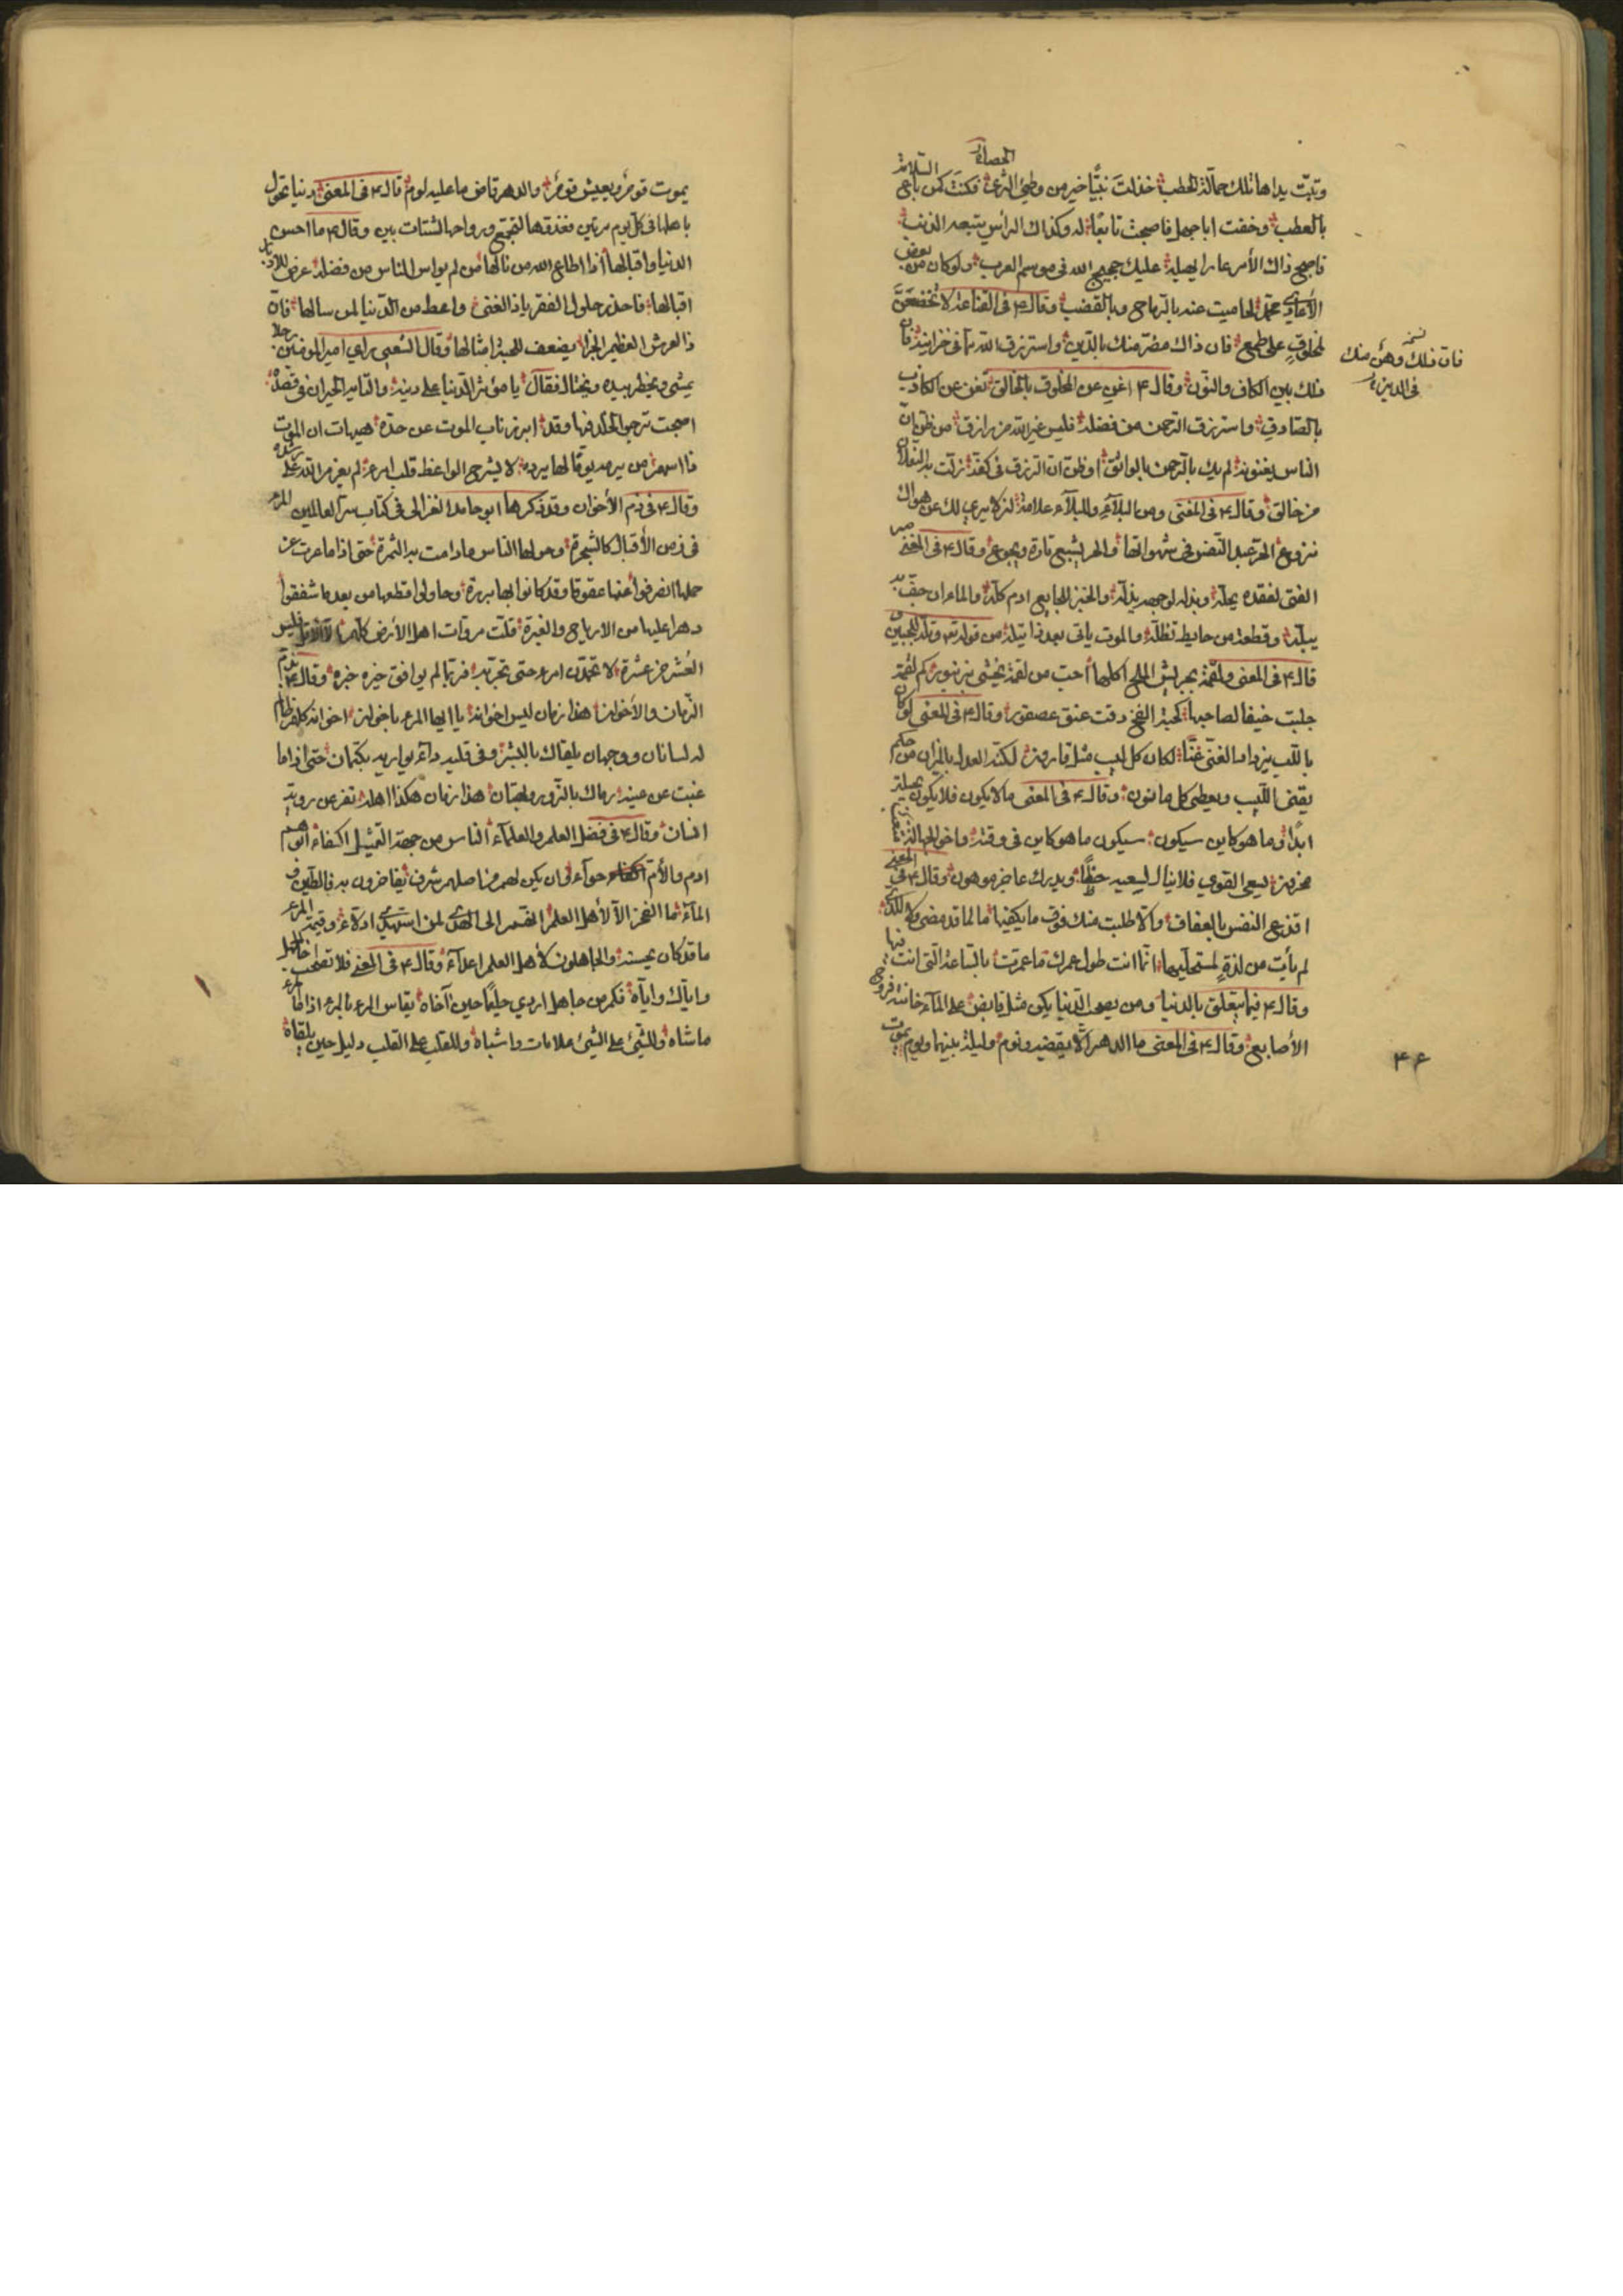 وتبّت يداها تلك حمّالة الحطب خذلت نبيّا خير من وطئ الثرى فكنت كمن باع
السلامة
بالعطب وخفت ابا جهل فاصبحت تابعا له وكذاك الرأس يتبعه الذنب
فاصبح ذاك الأمر عارا يهيله عليك حجيج الله في موسم العرب ولو كان من بعض
الأعادي محمّد لحاميت عنه بالرماح وبالقضب وقال ع في القناعة لا تخضعنّ
لمخلوق على طمع فان ذاك مضرّ منك بالدين واسترزق الله مما في خزاينه فان
ذلك بين الكاف والنون وقال ع اغن عن المخلوق بالخالق تغن عن الكاذب
بالصادق واسترزق الرحمن من فضله فليس غير الله من رازق من ظنّ ان
الناس يغنونه لم يك بالرحمن بالواثق او ظنّ ان الرزق في كفّه زلّت به النعلان
من خالق وقال ع في المعنى ومن البلاء وللبلاء علامة ان لا يرى لك عن هواك
نزوع الحرّ عبد النفس في شهواتها والحر يشبع تارة ويجوع وقال ع في المعنى
الفتى لفقده يجلّه وبذله لوجهه يذلّه والخبز للجايع ادم كلّه والماء ان جفّ به
يبلّه وقطعة من حايط تظلّه والموت ياتي بعد ذا يتلّه من قوله تع وتلّه للجبين
قال ع في المعنى ولقمة بجريش الملح اكلها احبّ من لقمة تحشى بزنبور كم لقمة
جلبت حتفا لصاحبها كحبّة الفخ دقت عنق عصفور وقال ع في المعنى لو كان
باللب يزداد الغنى غنا لكان كل لبيب مثل قارون لكنّه العدل بالميزان من حكم
يقضي اللبيب ويعطي كل مافون وقال ع في المعنى ما لا يكون فلا يكون بحيلة
ابدا وما هو كاين سيكون سيكون ما هو كاين في وقته واخو الجهالة
محزون يسعى القوي فلا ينال بسعيه حظّا ويدرك عاجز موهون وقال ع في المعنى
اقنع النفس بالعفاف والا طلبت منك فوق ما يكفيها ما لما قد مضى ولا للذي
لم يأت من لذة لمستحليها انما انت طول عمرك ما عمرت بالساعة التي انت فيها
وقال ع فيما يتعلق بالدنيا ومن يصحب الدنيا يكن مثل قابض على الماء خانته فروج
الأصابع وقال ع في المعنى ما الدهر الا يقضيه ونوم وليلة بينهما ويوم يموت
فان ذلك وهن منك
في الدين
٤٦
يموت قوم ويعيش قوم والدهر قاض ما عليه لوم قال ع في المعنى دنيا تحول
باهلها في كل يوم مرتين فغدوّها لتجمّع ورواحها لشتات بين وقال ع ما احسن
الدنيا واقبالها اذا اطاع الله من نالها من لم يواس الناس من فضله عرض للادبار
اقبالها فاحذر حلول الفقر ياذا الغنى واعط من الدنيا لمن سالها فانّ
ذا العرش العظيم الجزا يضعف للحبة امثالها وقال الشعبي راي امير المومنين رجلا
يمشي ويخطر بيده ويختال فقال يا موثر الدنيا على دينه والتايه الحيران في قصده
اصبحت ترجو الخلد فيها وقد ابرز ناب الموت عن حدّه هيهات ان الموت
ذا اسهم من يرمه يوما بها يرده لا يشرح الواعظ قلب امرء لم يعزم الله على رشده
وقال ع في ذم الأخوان وقد ذكرها ابو حامد الغزالي في كتاب سرّ العالمين المرء
في زمن الأقبال كالشجرة وحولها الناس ما دامت به الثمرة حتى اذا ما عرت عن
حملها انصرفوا عنها عقوقا وقد كانوا بها بررة وحاولوا قطعها من بعد ما شفقوا
دهرا عليها من الارياح والغبرة قلّت مروّات اهل الأرض كلّهم الا الاقل فليس
العشر من عشرة لا تحمدن امرء حتى تجرّبه فربّما لم يوافق خبره خبره وقال ع
الزمان والأخوان هذا زمان ليس اخوانه يا ايها المرء باخوان اخوانه كلهم ظالم
له لسانان ووجهان يلقاك بالبشر وفي قلبه داء يواريه بكتمان حتى اذا ما
غبت عن عينه رماك بالزّور وبهتان هذا زمان هكذا اهله تفر عن روية
انسان وقال ع في فضل العلم والعلماء الناس من جهة التمثيل اكفاء ابوهم
ادم والأم حواء فان يكن لهم من اصلهم شرف يفاخرون به فالطين و
الماء ما الفخر الا لأهل العلم انهم الى الهدى لمن استهدى ادلاء وقيمة المرء
ما قد كان يحسنه والجاهلون لأهل العلم اعداء وقال ع في المعنى فلا تصحب اخا الجهل
واياك واياه فكم من جاهل اردى حليما حين آخاه يقاس المرء بالمرء اذا ما المرء
ماشاه وللشئ على الشئ علامات واشباه وللقلب على القلب دليل حين يلقاه